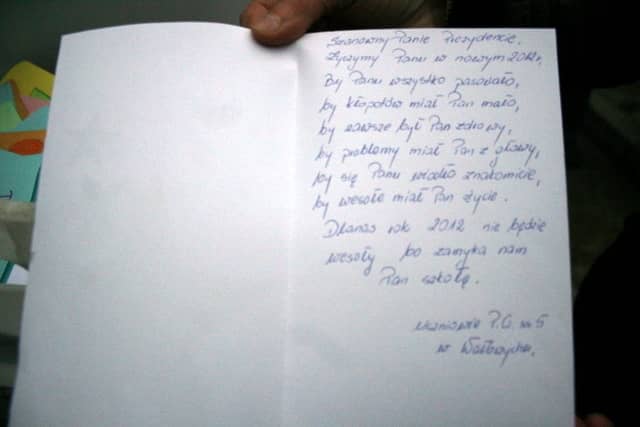 Szanowny Panie Prezydencie.
Życzymy Panu w nowym 2012 r.
By Panu wszystko pasowało,
by kłopotów miał Pan mało,
by zawsze był Pan zdrowy,
by problemy miał Pan z głowy,
by się Panu wiodło znakomicie,
by wesołe miał Pan życie.
Dlanas rok 2012 nie będzie
wesoły bo zamyka nam
Pan szkołę.
Uczniowie P.G. nr 5
w Wałbrzychu.